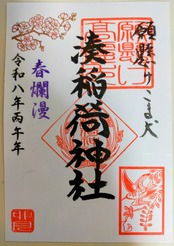 願懸け こま犬
湊稲荷神社
春爛漫
令和八年丙午年